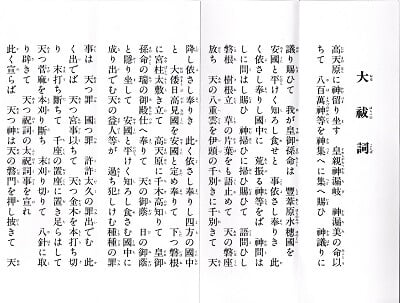 大祓詞
高天原に神留り坐す 皇親神漏岐 神漏美の命以
ちて 八百萬神等を神集へに集へ賜ひ 神議りに
議り賜ひて 我が皇御孫命は 豐葦原水穗國を
安國と平けく知ろし食せと 事依さし奉りき 此
く依さし奉りし國中に 荒振る神等をば 神問は
しに問はし賜ひ 神掃ひに掃ひ賜ひて 語問ひし
磐根 樹根立 草の片葉をも語止めて 天の磐座
放ち 天の八重雲を伊頭の千別きに千別きて 天
降し依さし奉りき 此く依さし奉りし四方の國中
と 大倭日高見國を安國と定め奉りて 下つ磐根
に宮柱太敷き立て 高天原に千木高知りて 皇御
孫命の瑞の御殿仕へ奉りて 天の御蔭 日の御蔭
と隱り坐して 安國と平けく知ろし食さむ國中に
成り出でむ天の益人等が 過ち犯しけむ種種の罪
事は 天つ罪 國つ罪 許許太久の罪出でむ 此
く出でば 天つ宮事以ちて 天つ金木を本打ち切
り 末打ち斷ちて 千座の置座に置き足らはして
天つ菅麻を本刈り斷ち 末刈り切りて 八針に取
り辟きて 天つ祝詞の太祝詞事を宣れ
此く宣らば 天つ神は天の磐門を押し披きて 天